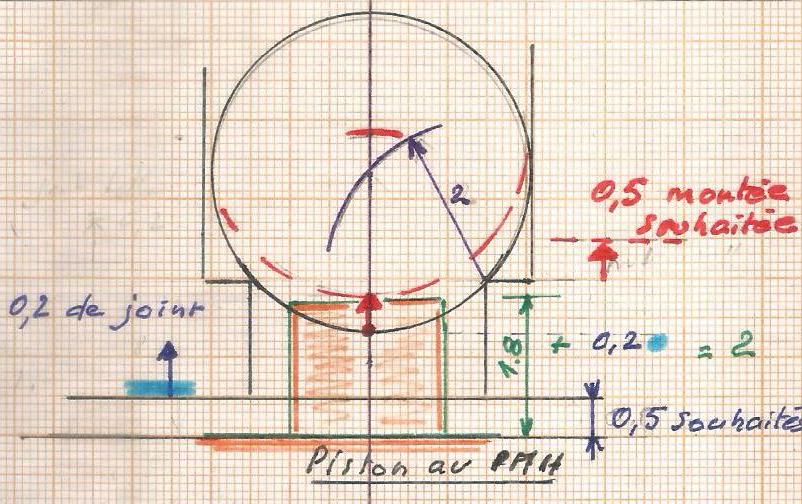 2
0,5 montée
souhaitée
0,2 de joint
1.8 + 0,2 = 2
0,5 souhaités
Piston au PMH